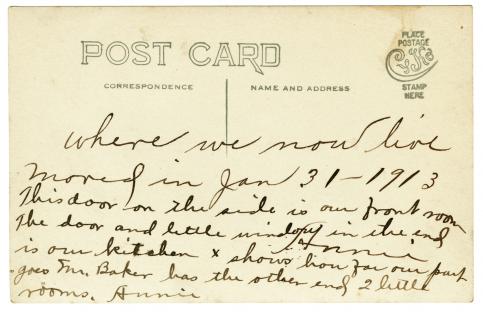 POST CARD
PLACE
POSTAGE
STAMP
HERE
CORRESPONDENCE
NAME AND ADDRESS
where we now live
moved in Jan 31-1913
This door on the side is our front room
The door and little window in the end
Annie
is our kitchen x shows how far our part
goes Mr. Baker has the other end 2 little
rooms. Annie